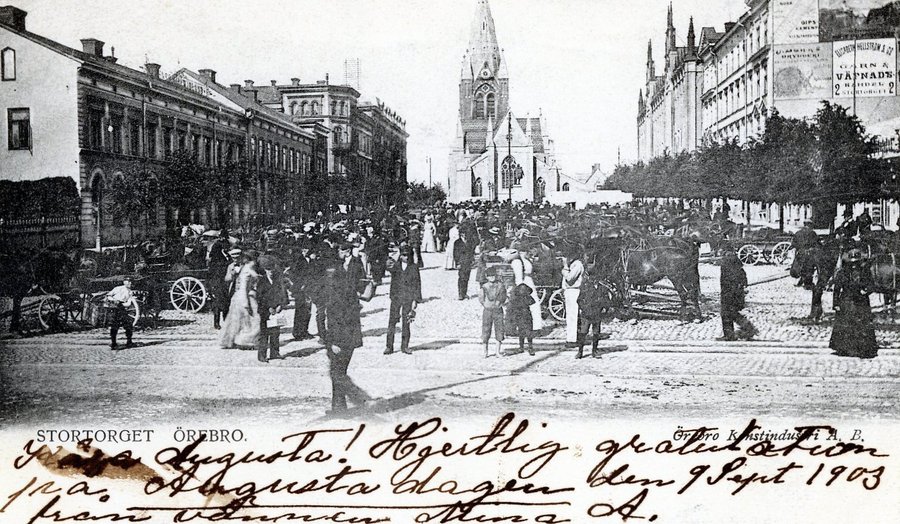 GIPS
CEMENT
GARN &
VÄFNADS
HANDEL
2 STORTORGET 2
STORTORGET ÖREBRO.
Örebro Konstindustri A. B.
Augusta! Hjertlig gratulation
på Augusta dagen den 9 Sept 1903
från vännen Mina A.